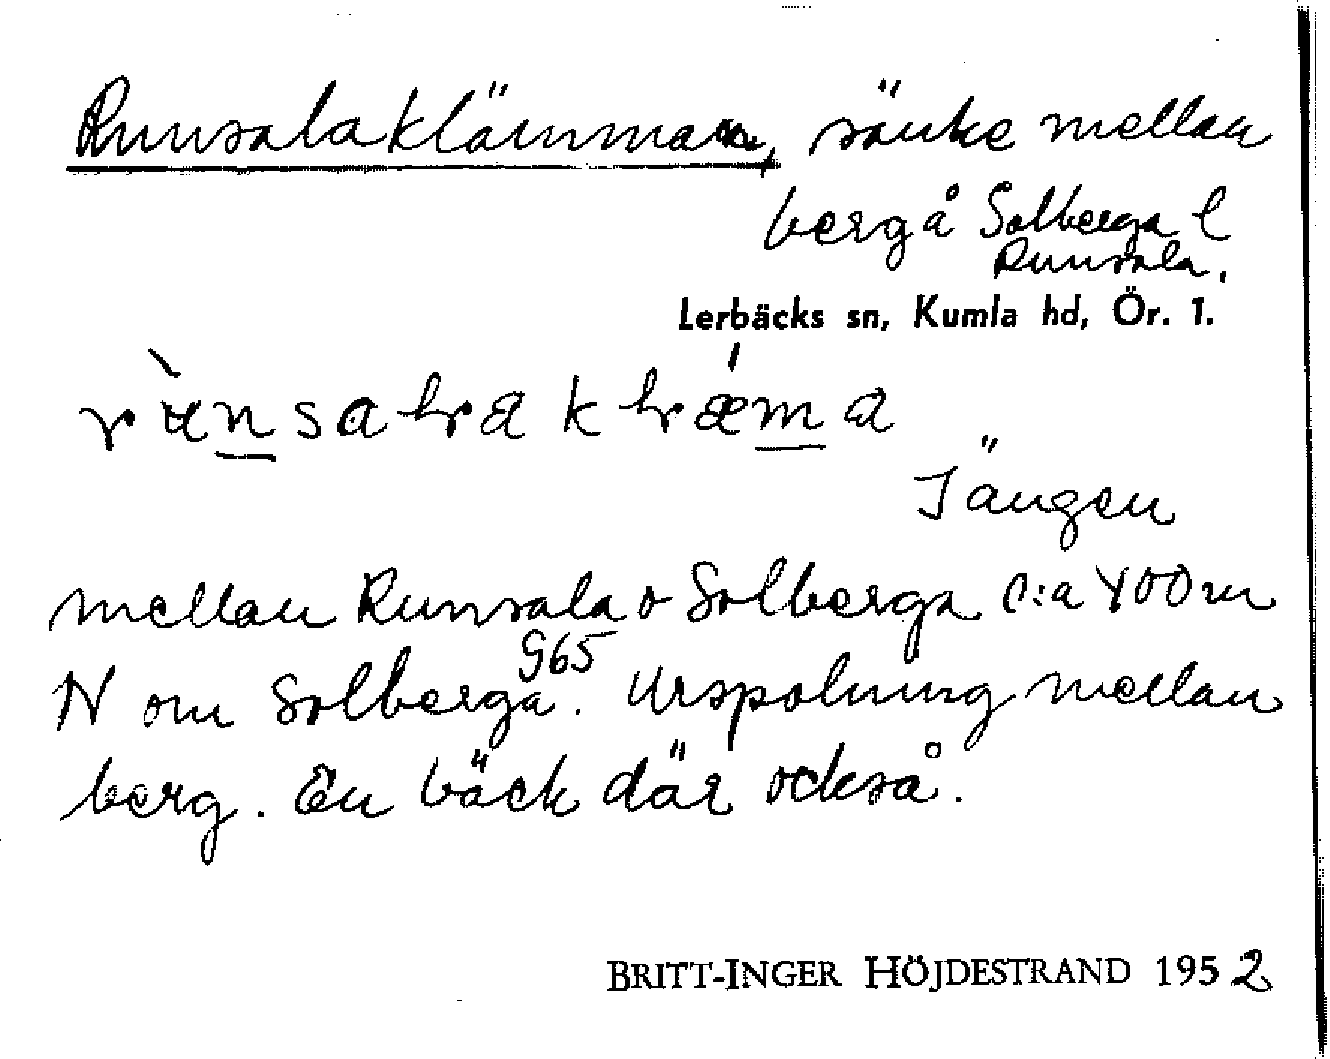 Runsalaklämman, sänke mellan
berg å Solberga l
Runsala.
Lerbäcks sn, Kumla hd, Ör. 1.
I ängen
mellan Runsala o Solberga c:a 400 m
N om Solberga G65. Urspolning mellan
berg. En bäck där också.
BRITT-INGER HÖJDESTRAND 1952